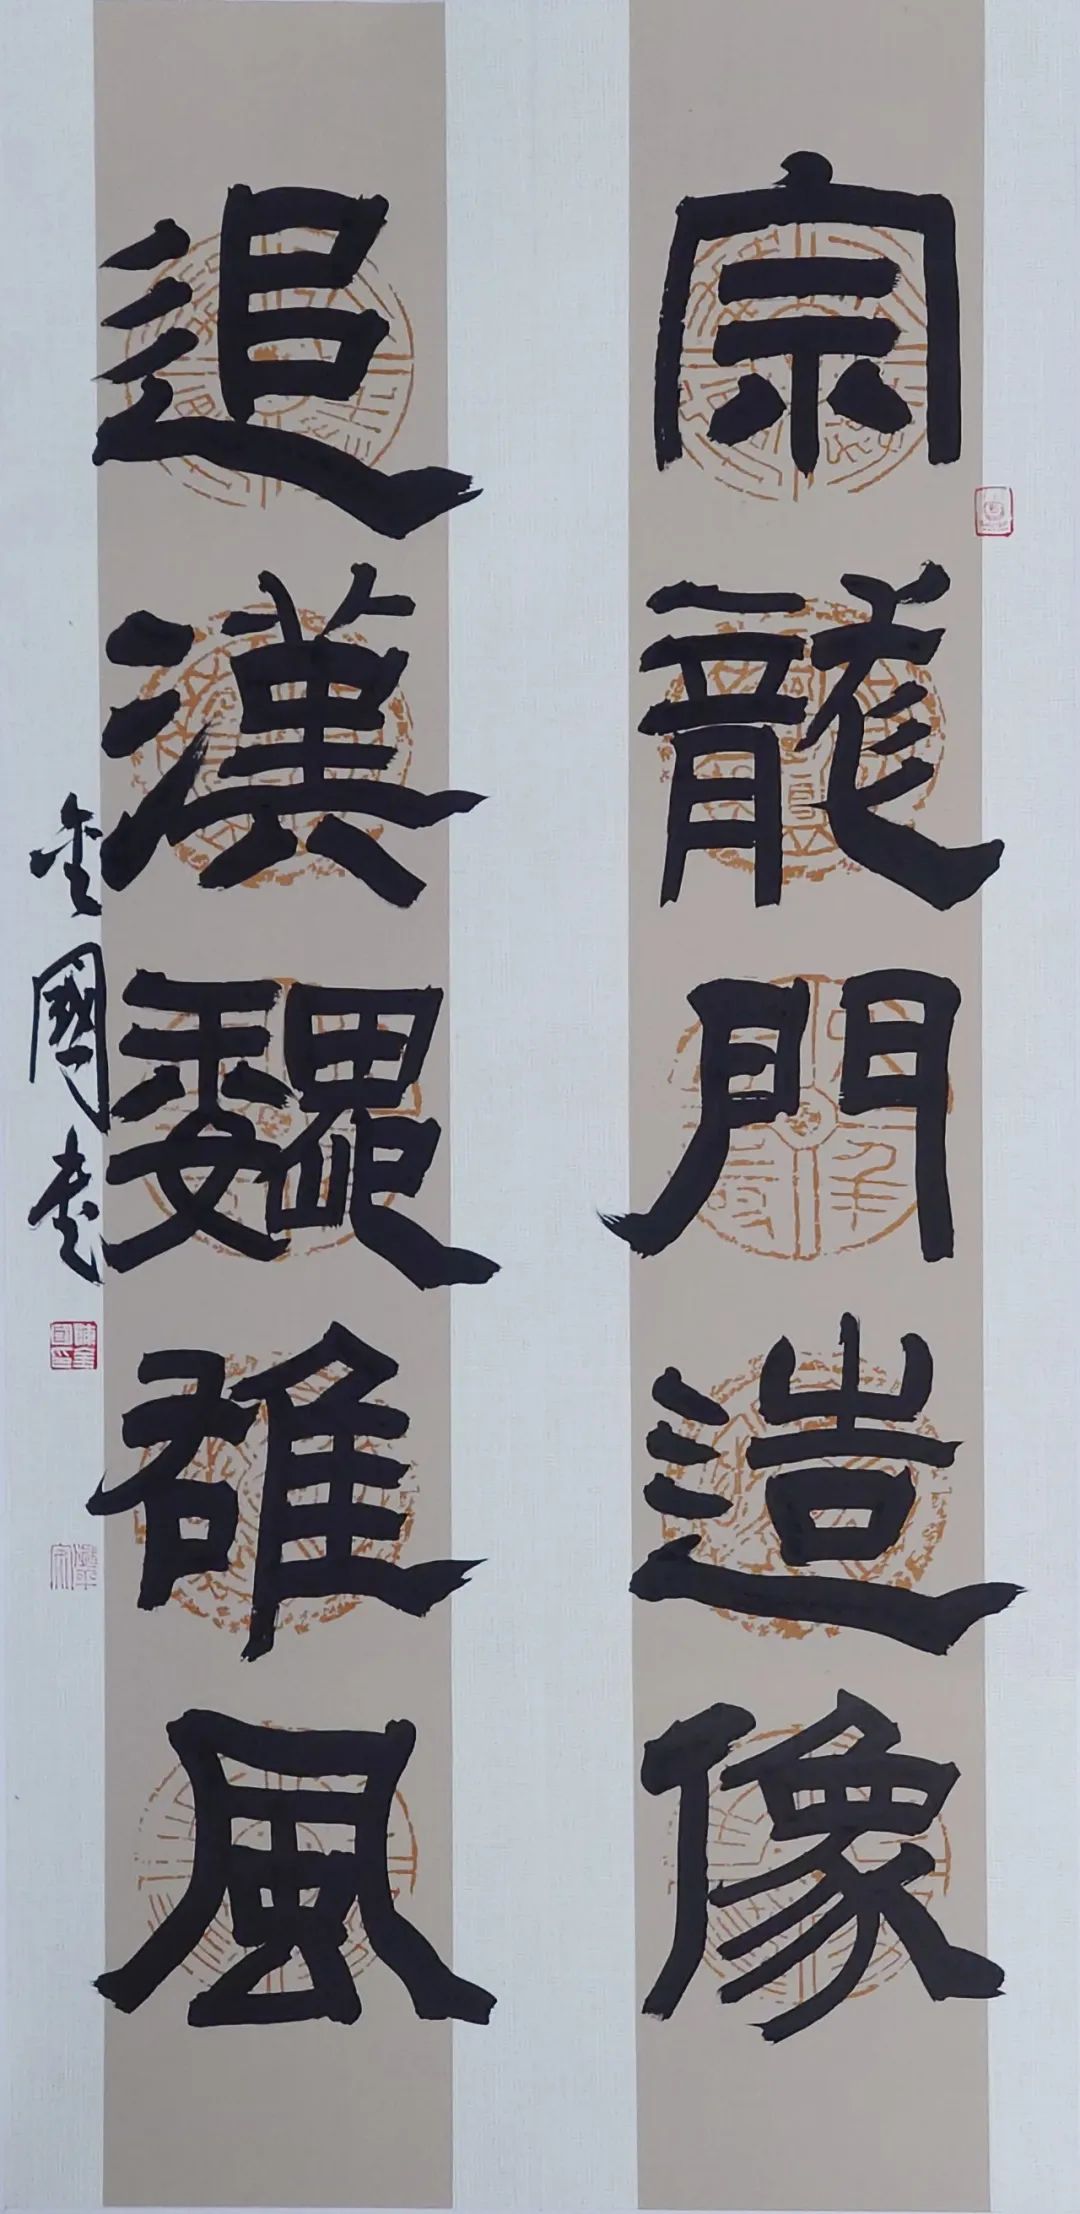 宗龍門造像
追漢魏雄風
金國書